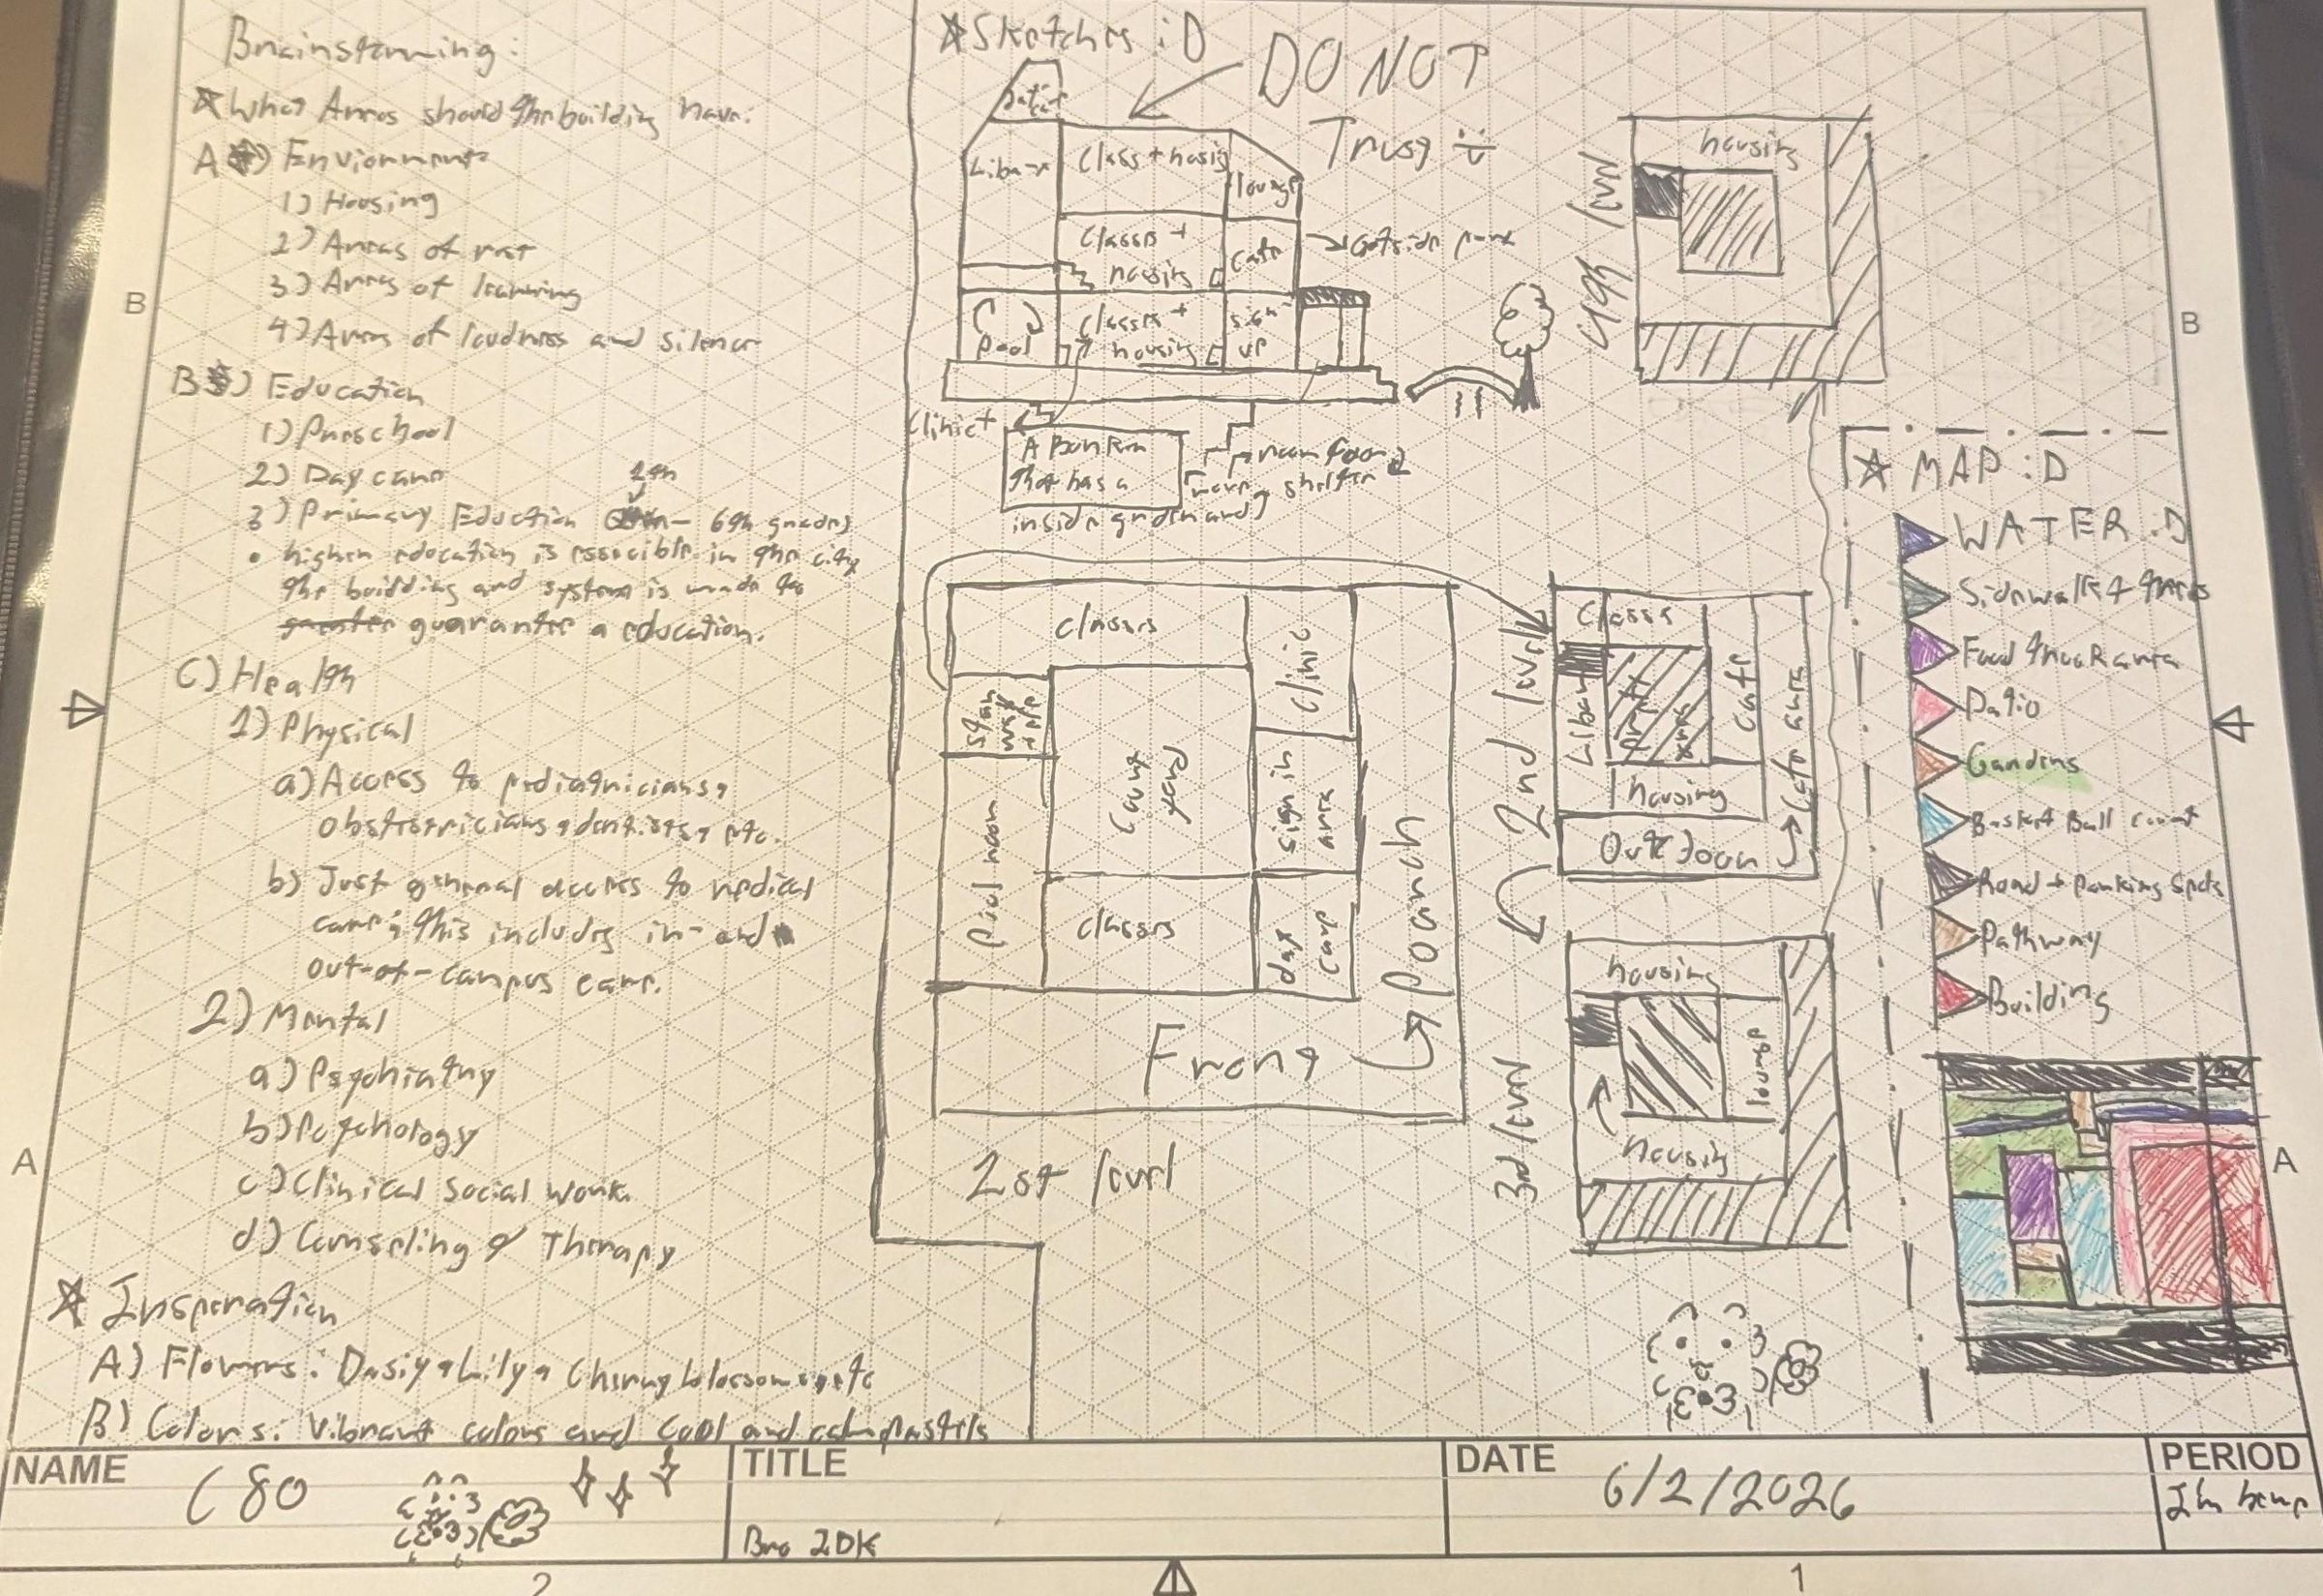 Brainstorming:
What Areas should the building have:
A) Enviorment
1) Housing
2) Areas of rest
3) Areas of learning
4) Areas of loudness and silence
B) Education
1) Preschool
2) Day care
3) Primary Eduction - 6th grades
• higher education is in the city
the building and system is made to
guarantee a education.
C) Health
1) Physical
a) Access to pediatricians,
obstetricians, dentists, etc.
b) Just general access to medical
care; this includes in- and
out-of-campus care.
2) Mental
a) Psychiatry
b) Psychology
c) Clinical social work
d) Counseling & Therapy
Insperation
A) Flowers: Dasiy, Lily, Cherry blossoms, etc
B) Colors: Vibrant colors and cool and calm pastels
Sketches :D
DO NOT
Trust
Class + hosig
lounge
Classes +
housing
cafe
outside
pool
classes +
housing
sign
up
clinic+
A
that has a
inside
shelter
classes
clinic
stair
way
Court
yard
sign in
area
pool room
classes
day
care
Poarch
Front
1st level
2nd level
Class
cafe
cafe area
housing
Outdoor
3rd level
housing
lounge
housing
4th level
housing
MAP :D
WATER :D
Sidewalk + trees
Food truck area
Patio
Gardens
Basket Ball court
Road + parking spots
Pathway
Building
NAME
TITLE
Bro IDK
DATE
6/2/2026
PERIOD
B
B
A
A
2
1